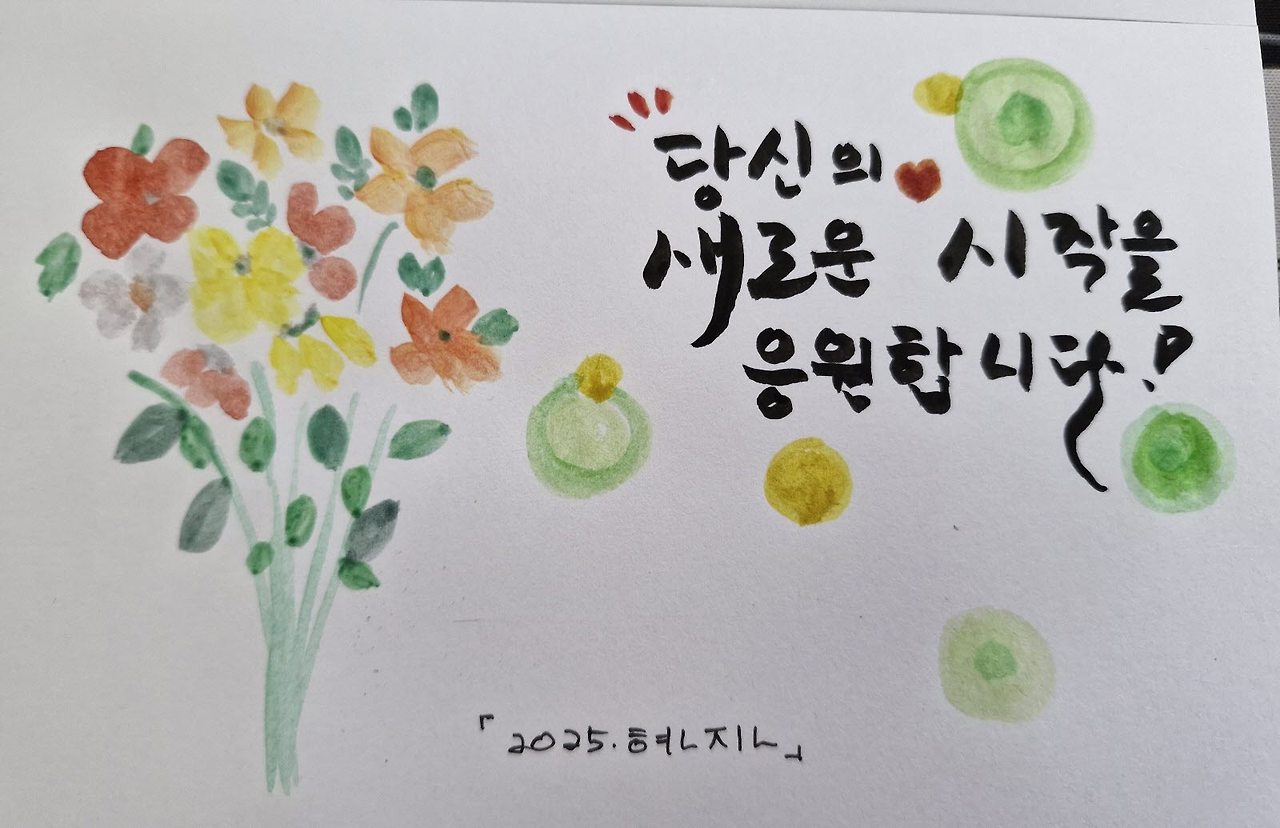 당신의
새로운 시작을
응원합니다!
「2025. 현진」